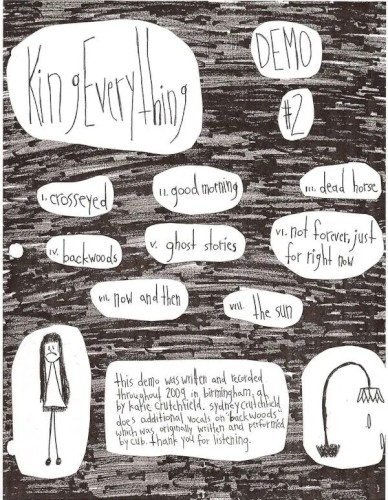 King Everything
DEMO
#2
i. crosseyed
ii. good morning
iii. dead horse
iv. backwoods
v. ghost stories
vi. not forever, just
for right now
vii. now and then
viii. the sun
this demo was written and recorded
throughout 2009 in birmingham, al
by katie crutchfield. sydney crutchfield
does additional vocals on "backwoods"
which was originally written and performed
by cub. thank you for listening.